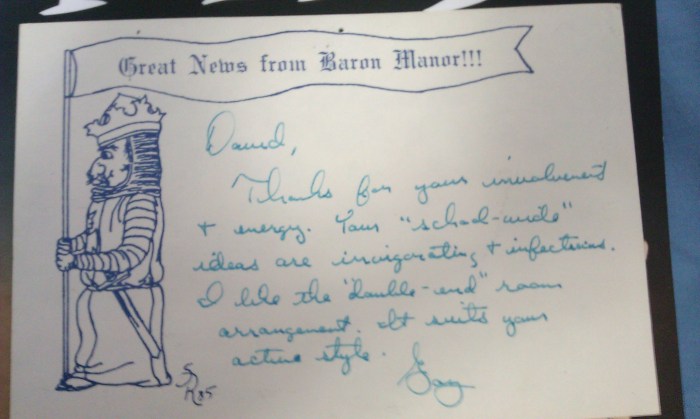 Great News from Baron Manor!!!
David,
Thanks for your involvement
+ energy. Your "school-wide"
ideas are invigorating + infectious.
I like the "double-end" room
arrangement. It suits your
active style.
Gay